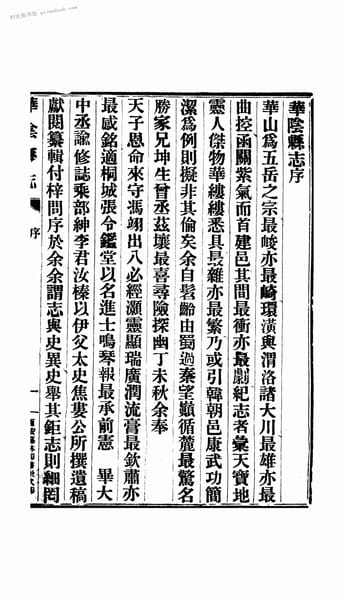 華陰縣志序
華山爲五岳之宗最峻亦最崎環潢與渭洛諸大川最雄亦最
曲控函關紫氣而首建邑其間最衝亦最劇紀志者彙天寶地
靈人傑物華縷縷悉具最雜亦最繁乃或引韓朝邑康武功簡
潔爲例則擬非其倫矣余自髫齡由蜀過秦望巔循麓最驚名
勝家兄坤生曾丞茲壤最喜尋險探幽丁未秋余奉
天子恩命來守馮翊出入必經灝靈顯瑞廣潤流膏最欽肅亦
最感銘適桐城張令鑑堂以名進士鳴琴報最承前憲 畢大
中丞諭修誌乘部紳李君汝榛以伊父太史焦婁公所撰遺稿
獻閱纂輯付梓問序於余余謂志與史異史舉其鉅志則細罔
華陰縣志
序
一